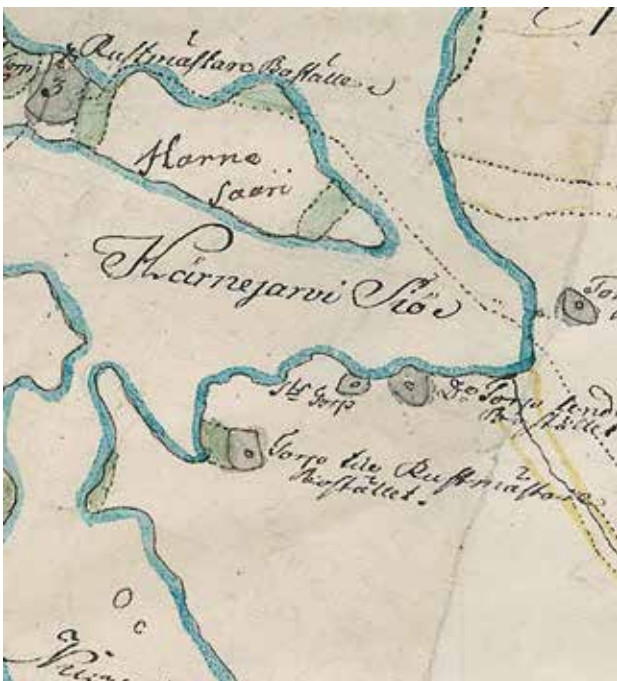 Torp
3
Rustmästare Boställe
Harne
saari
Kärnejarvi Siö
To
Sts Torp
Do Torp
Boställe
Torp till Rustmästare
Bostället.
O
c